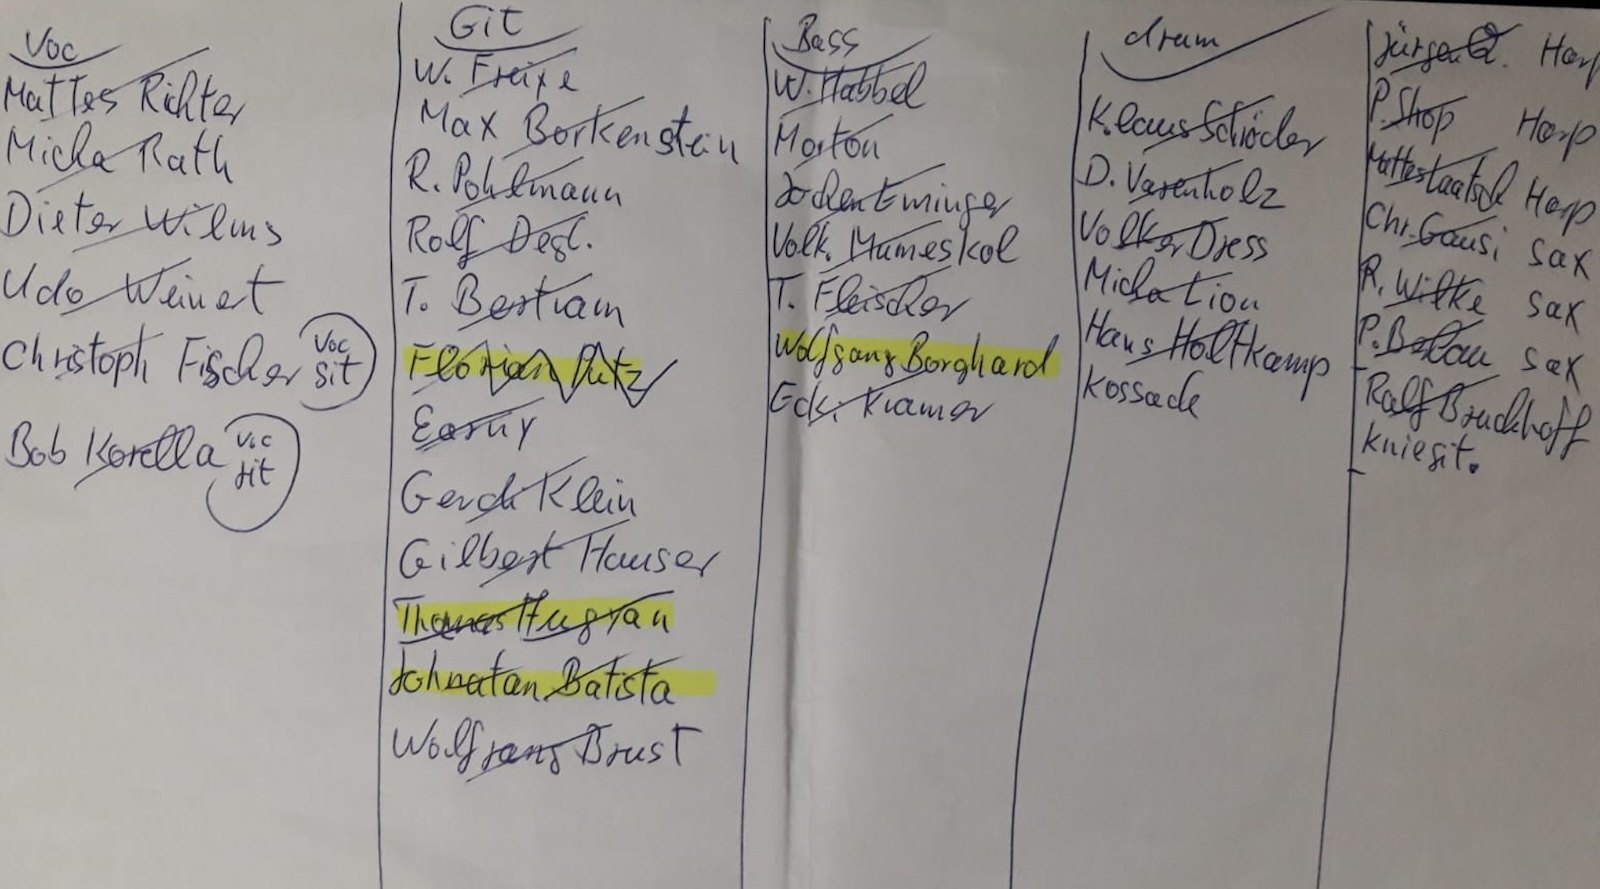 Voc
Mattes Richter
Micha Rath
Dieter Wilms
Udo Weinert
Christoph Fischer Voc Git
Bob Korella Voc Git
Git
W. Freixe
Max Borkenstein
R. Pohlmann
Rolf Degl.
T. Bertram
Florian Putz
Earny
Gerd Klein
Gilbert Hauser
Thomas
Johnatan Batista
Wolfgang Brust
Bass
W. Habbel
Morton
Jochen Eminger
Volk. Mameskol
T. Fleischer
Wolfgang Borghard
Ecki Kramer
drum
Klaus Schröder
D. Varenholz
Volker Dress
Micha Lion
Hans Holtkamp
Kossack
Jürgen Q. Harp
P. Shop Harp
Harp
Chr. Gausi Sax
R. Wilke Sax
P. Belau Sax
Ralf Bruckhoff
Kniegit.